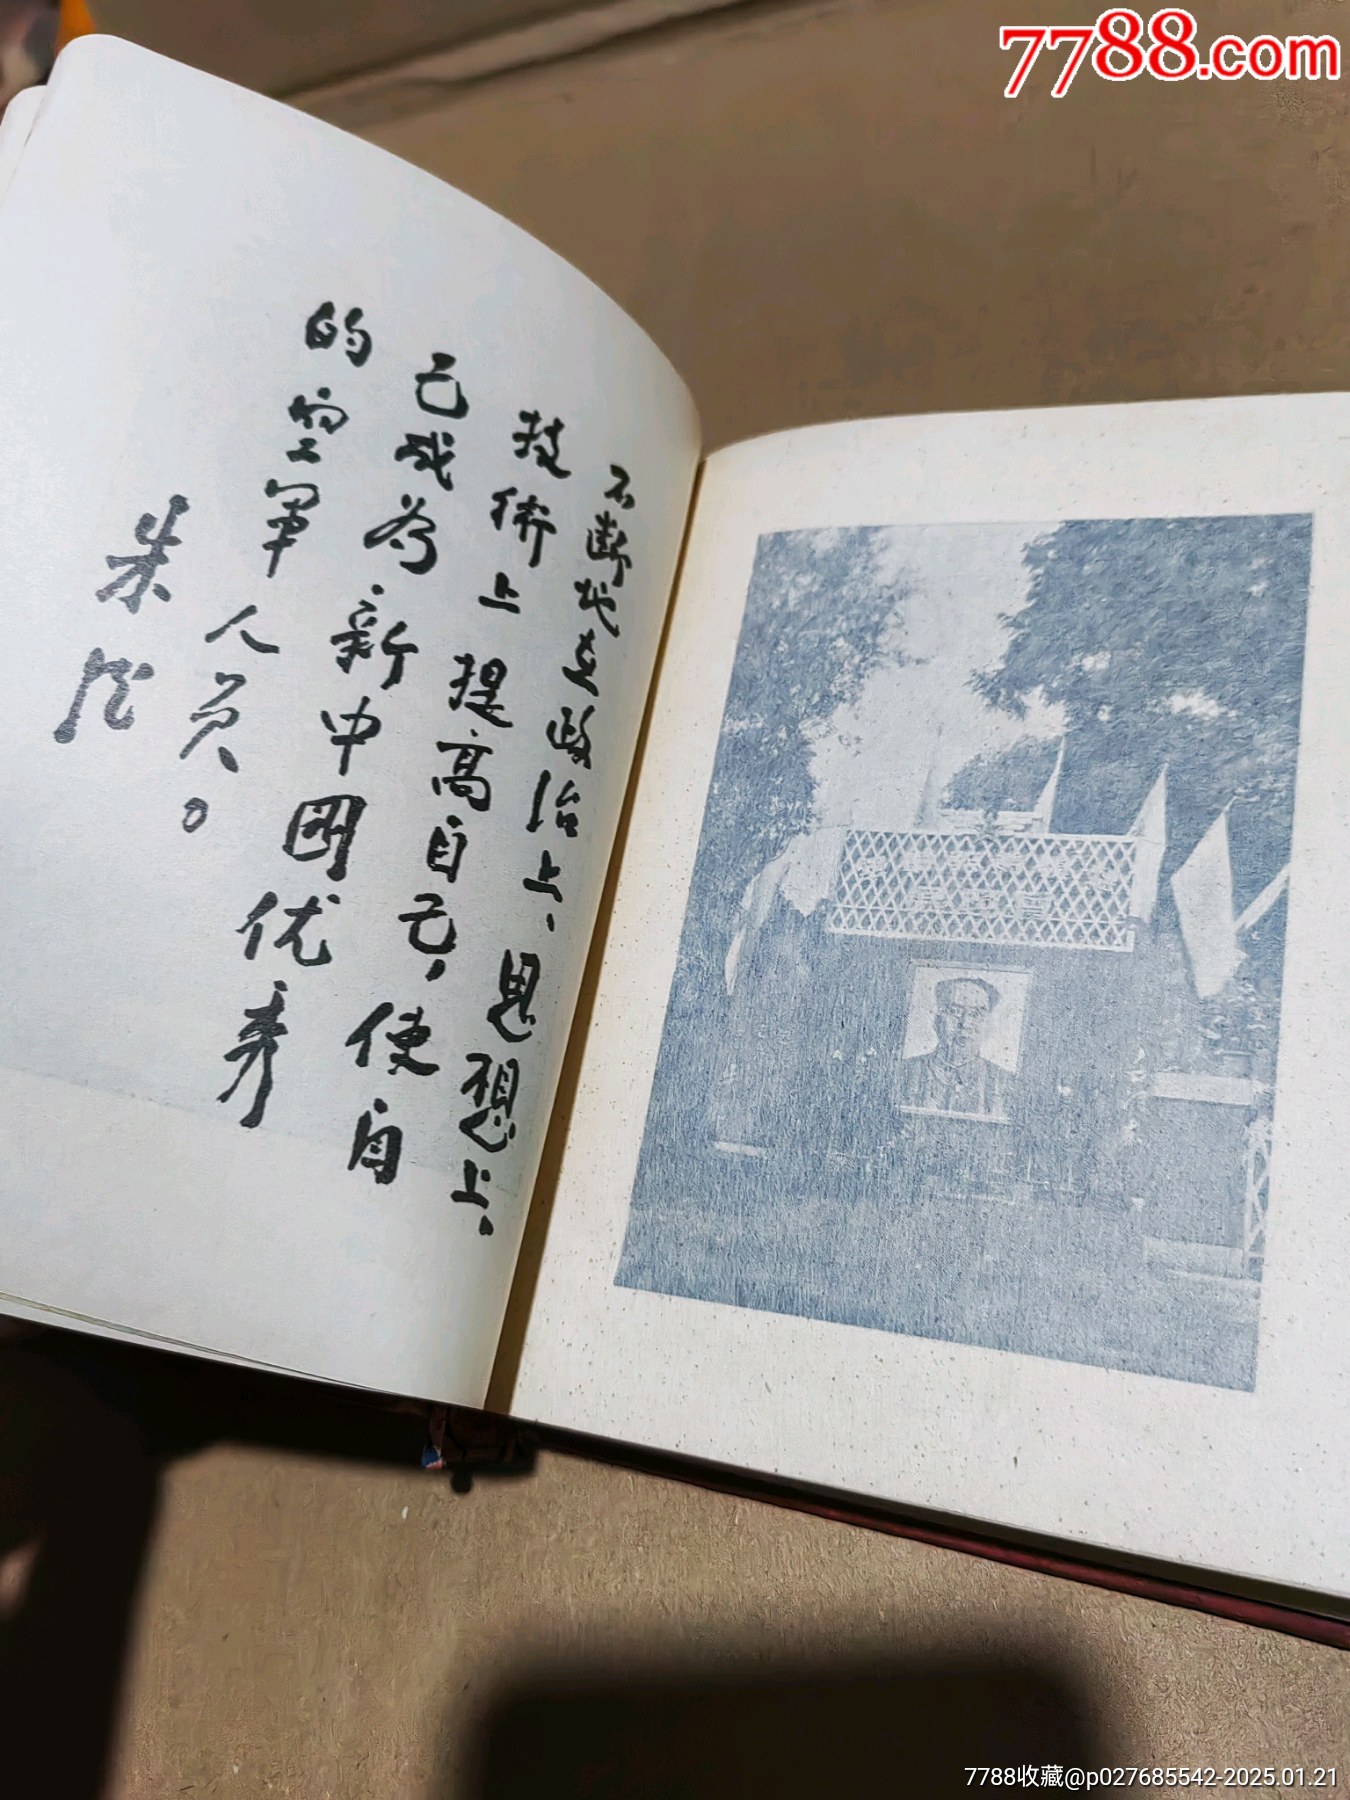 7788.com
不断地在政治上、思想上、
技術上提高自己，使自
己成为新中國优秀
的空軍人員。
朱德
7788收藏@p027685542-2025.01.21